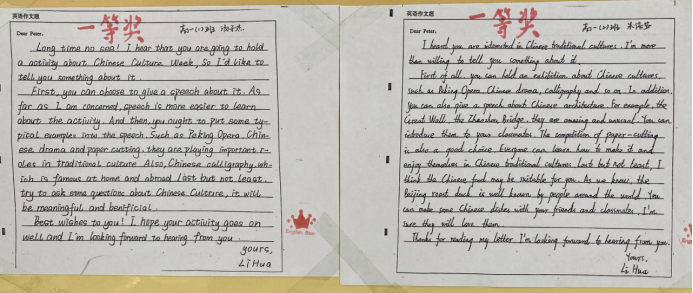 英语作文题
一等奖
高一(1)班
Dear Peter,
Long time no see! I hear that you are going to hold
a activity about Chinese Culture Week, So I'd like to
tell you something about it.
First, you can choose to give a speech about it. As
far as I am concerned, speech is more easier to learn
about the activity. And then, you ought to put some ty-
pical examples into the speech. Such as Peking Opera, Chin-
ese drama and paper cutting, they are playing important r-
oles in traditional culture. Also, Chinese calligraphy, wh-
ich is famous at home and abroad. Last but not least,
try to ask some questions about Chinese Culture, it will
be meaningful and benificial.
Best wishes to you! I hope your activity goes on
well and I'm looking forward to hearing from you.
yours,
Li Hua
英语作文题
一等奖
高一(1)班
Dear Peter,
I heard you are interested in Chinese traditional cultures. I'm more
than willing to tell you something about it.
First of all, you can hold an exhibition about Chinese cultures,
such as Peking Opera, Chinese drama, calligraphy and so on. In addition,
you can also give a speech about Chinese architecture. For example, the
Great Wall, the Zhaozhou Bridge, they are amazing and unusual. You can
introduce them to your classmates. The competition of paper-cutting
is also a good choice. Everyone can learn how to make it and
enjoy themselves in Chinese traditional cultures. Last but not least, I
think the Chinese food may be suitable for you. As we know, the
Beijing roast duck is well known by people around the world. You
can make some Chinese dishes with your friends and classmates, I'm
sure they will love them.
Thanks for reading my letter. I'm looking forward to hearing from you.
Yours,
Li Hua